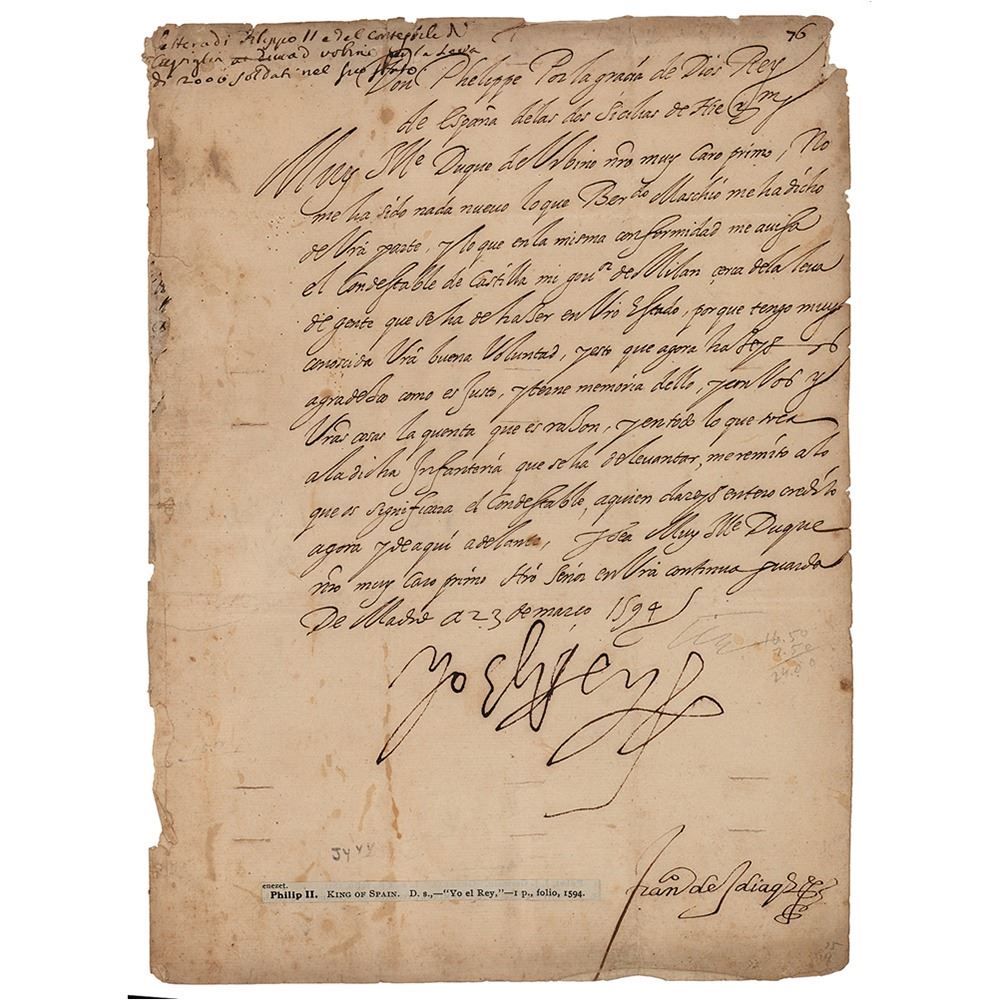 Lettera di Filippo II e del Contestabile di
Castiglia al Duca d'Urbino per la Leva
di 2000 soldati nel suo stato
76
Don Phelippe Por la graçia de Dios Rey
de España delas dos Sicilias de Hierm
Muy Ille Duque de Urbino nro muy Caro primo, No
me ha sido nada nuevo lo que Berdo Maschio me ha dicho
de Vra parte, y lo que en la misma conformidad me avisa
el Condestable de Castilla mi govor de Milan, çerca dela leva
de gente que se ha de hazer en Vro Estado, porque tengo muy
conosçida Vra buena Voluntad, y esto que agora hazeys os
agradesco como es justo, y terne memoria dello, y con Vos y
Vras cosas la quenta que es razon, y en todo lo que toca
ala dicha Infanteria que se ha de levantar, me remito a lo
que os significara el Condestable, a quien dareys entero credito
agora y de aqui adelante, Y sea Muy Ille Duque
nro muy Caro primo Nro Señor en Vra continua guarda
De Madrid a 23 de março 1594
16.50
7.50
24.00
Yo el Rey
J4YY
enezet.
Philip II. King of Spain. D. s.,—"Yo el Rey,"—1 p., folio, 1594.
Franco de Idiaqz